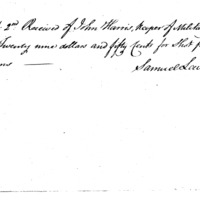 2nd Received of John Harris, Keeper of Milita
Twenty nine dollars and fifty Cents for Shot f
ns —
Samuel Law